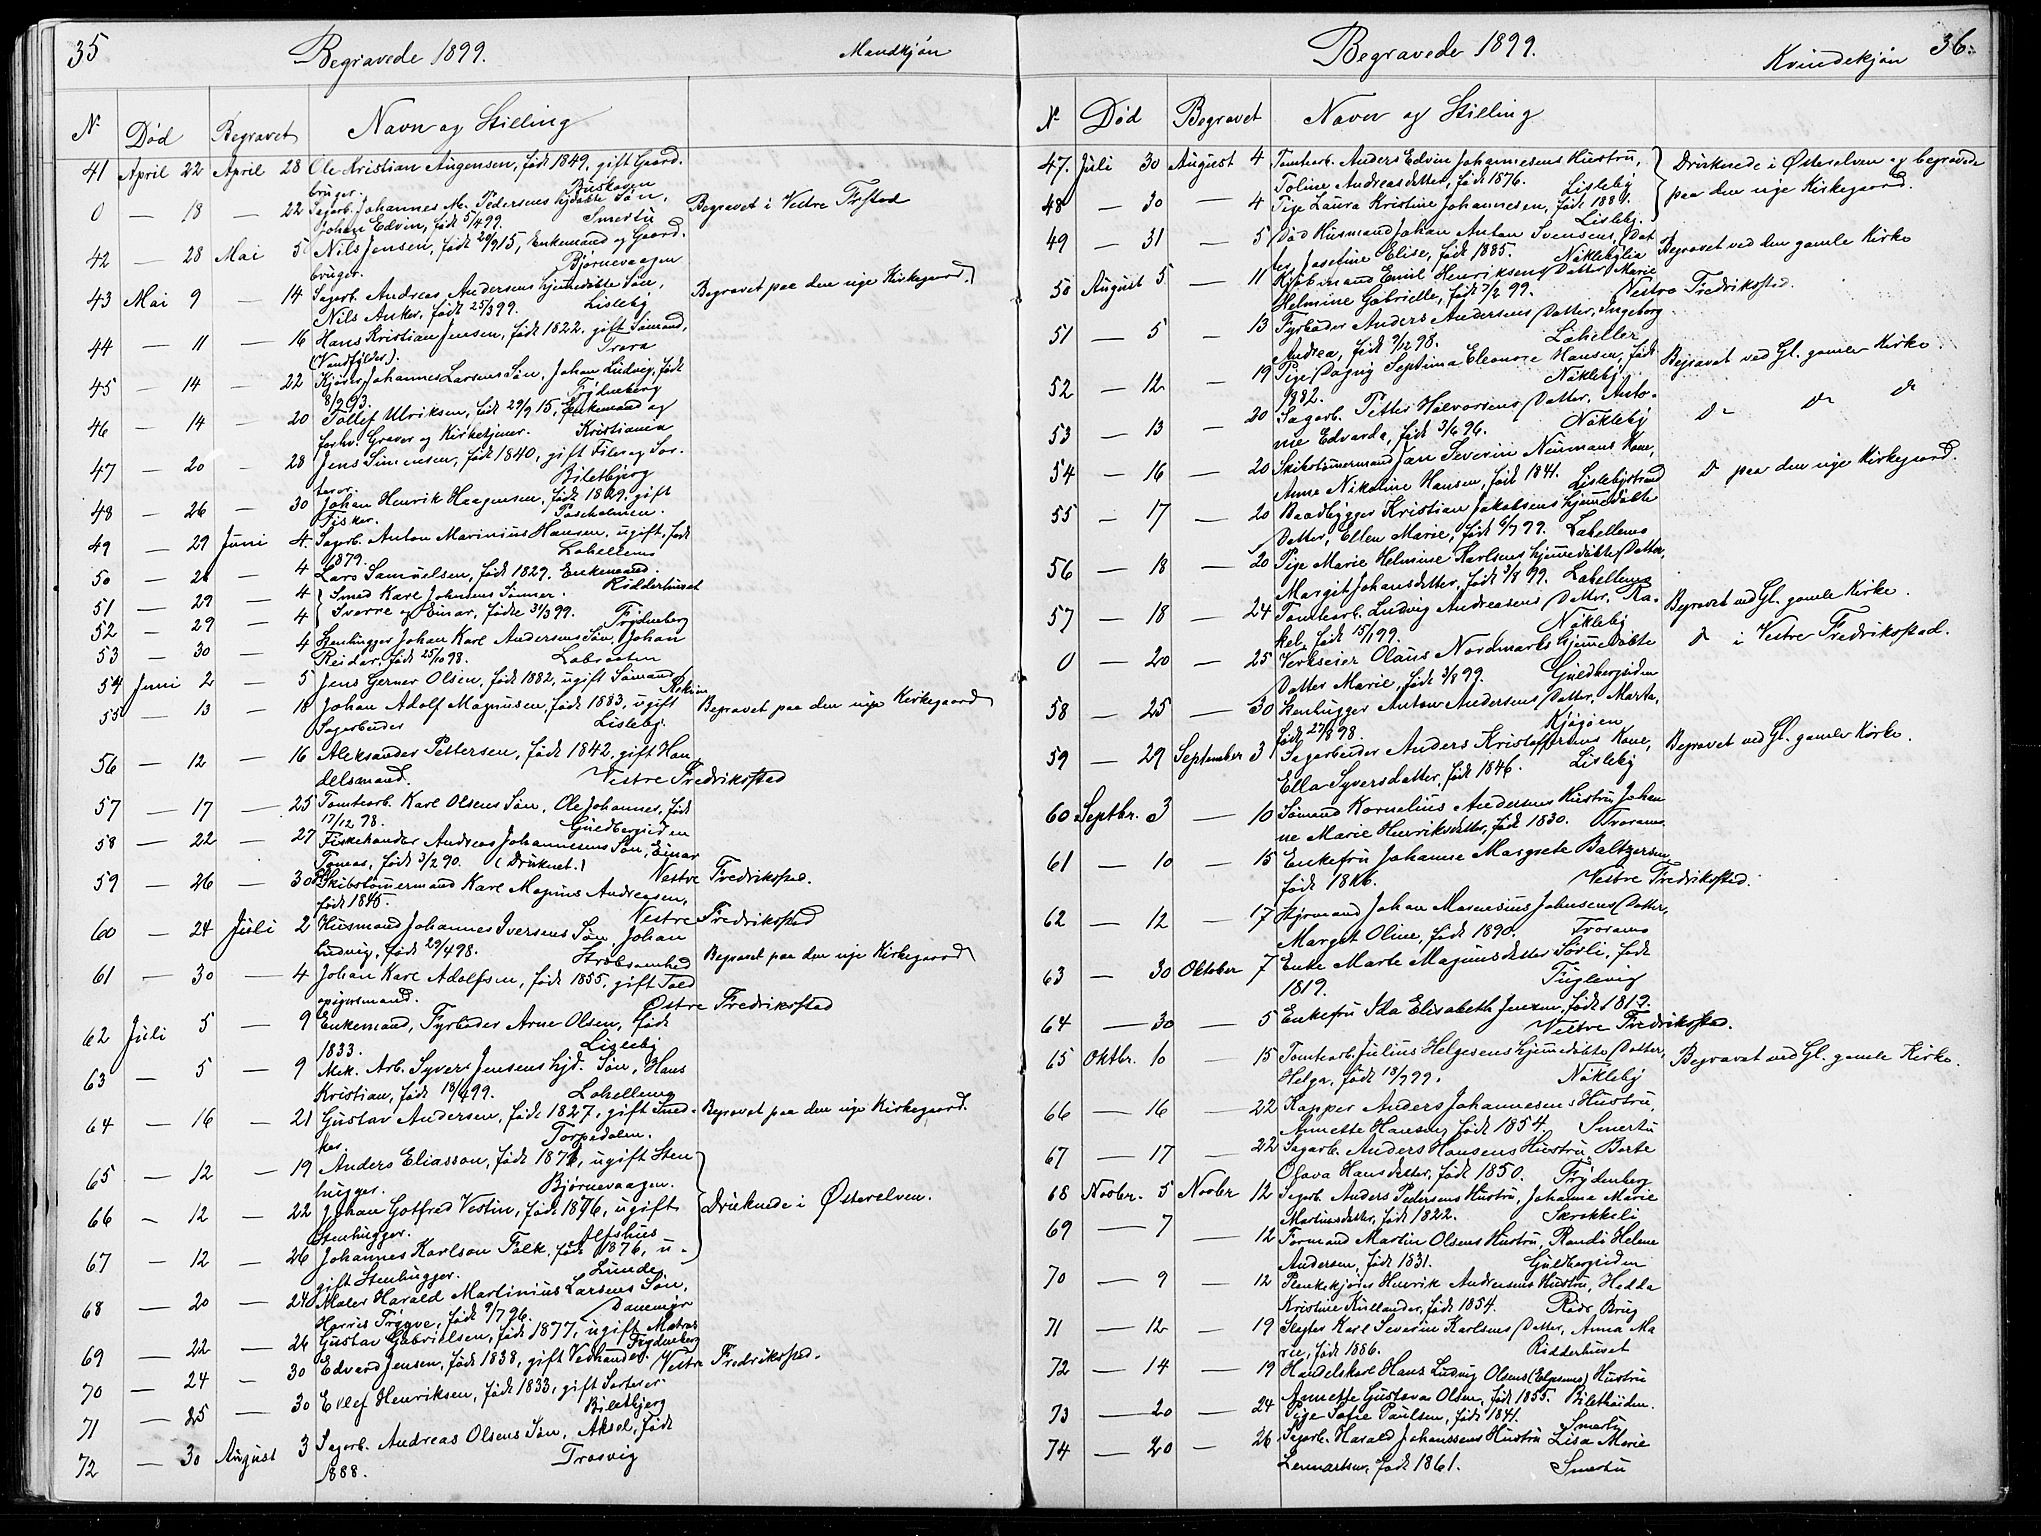 35
Begravede 1899.
Mandkjøn
N
Død
Begravet
Navn og Stilling
41 April 22 April 28 Ole Kristian Augensen, født 1849, gift Gaard-
bruger. Buskogen
0 — 18 — 22 Sagarb. Johannes M. Pedersens hjdøbte Søn, Begravet i Vestre Frstad
Johan Edvin, født 5/4 99. Smertu
42 — 28 Mai 5 Nils Jensen, født 20/9 15, Enkemand og Gaard-
bruger. Bjørnevaagen
43 Mai 9 — 14 Sagarb. Andreas Andersens hjemedøbte Søn, Begravet paa den nye Kirkegaard.
Nils Anker, født 25/3 99. Lisleby
44 — 11 — 16 Hans Kristian Jensen, født 1822. gift Sømand,
(Vandfylder). Trara
45 — 14 — 22 Kjører Johannes Larsens Søn, Johan Ludvig, født
8/9 93. Frydenberg
46 — 14 — 20 Tollef Ulriksen, født 29/9 15, Enkemand og
forhv. Graver og Kirketjener. Kristiania
47 — 20 — 28 Jens Simensen, født 1840, gift Filer og Sor-
terer. Biletbjerg
48 — 26 — 30 Johan Henrik Haagensen, født 1829. gift
Fisker.
49 — 29 Juni 4 Sagarb. Anton Marinius Hansen, ugift, født
1879. Lahellems
50 — 26 — 4 Lars Samuelsen, født 1829. Enkemand.
Ridderhuset
51 — 29 — 4 Smed Karl Johnsens Sønner.
52 — 29 — 4 Sverre og Einar, fødte 31/3 99. Frydenberg
53 — 30 — 4 Stenhugger Johan Karl Andersens Søn, Johan
Reidar, født 25/10 98. Labraaten
54 Juni 2 — 5 Jens Gerner Olsen, født 1882, ugift Sømand
55 — 13 — 18 Johan Adolf Magnusen, født 1883, ugift Begravet paa den nye Kirkegaard
Sagarbeider Lisleby.
56 — 12 — 16 Aleksander Pettersen, født 1842, gift Han
delsmand. Vestre Fredriksstad
57 — 17 — 25 Tomtearb. Karl Olsens Søn, Ole Johannes, født
17/12 98. Guldbergsiden
58 — 22 — 27 Fiskehandler Andreas Johannessens Søn, Einar
Tomas, født 3/2 90. (Druknet.) Vestre Fredriksstad.
59 — 26 — 30 Skibstømermand Karl Magnus Andreasen,
født 1845. Vestre Fredriksstad
60 — 24 Juli 2 Husmand Johannes Iversens Søn, Johan
Ludvig, født 29/4 98. Stræbsomhed Begravet paa den nye Kirkegaard
61 — 30 — 4 Johan Karl Adolfsen, født 1855. gift Told
opsynsmand. Østre Fredriksstad
62 Juli 5 — 9 Enkemand, Fyrbøder Arne Olsen, født
1833. Lisleby
63 — 5 — 9 Mek. Arb. Syver Jensens hjd. Søn, Hans
Kristian, født 18/4 99. Lahellems
64 — 16 — 21 Gustav Andersen, født 1827, gift Sned- Begravet paa den nye Kirkegaard.
ker. Torpedalen.
65 — 12 — 19 Anders Eliasson, født 1876, ugift Sten
hugger. Bjørnevaagen.
66 — 12 — 22 Johan Gotfred Vestin, født 1876, ugift Druknede i Østerelven.
Stenhugger. Alfshus
67 — 12 — 26 Johannes Karlson Falk, født 1876, u-
gift Stenhugger. Lunde
68 — 20 — 24 Maler Harald Martinius Larsens Søn,
Harris Trygve, født 9/7 96.
69 — 22 — 26 Gustav Gabrielsen, født 1877, ugift Matros
Frydenberg
70 — 24 — 30 Edvard Jensen, født 1838, gift Vedhandler. Vestre Fredriksstad.
71 — 25 — 30 Ellef Henriksen, født 1833, gift Sorterer
Biletbjerg
72 — 30 August 3 Sagarb. Andreas Olsens Søn, Aksel, født
1888. Trosvig
36.
Begravede 1899.
Kvindekjøn
N
Død
Begravet
Navn og Stilling
47. Juli 30 August 4 Tomtearb. Anders Edvin Johannesens Hustru, Druknede i Østerelven og begravede
Toline Andreasdatter, født 1876. Lisleby paa den nye Kirkegaard.
48 — 30 — 4 Pige Laura Kristine Johannesen, født 1884.
Lisleby.
49 — 31 — 5 Død Husmand Johan Anton Svensens Dat
ter, Josefine Elise, født 1885. Nøklebylia Begravet ved den gamle Kirke
50 August 5 — 11 Kjøbmand Emil Henriksens Datter Marie
Helmine Gabrielle, født 7/2 99. Vestre Fredriksstad.
51 — 5 — 13 Fyrbøder Anders Andersens Datter, Ingeborg
Andrea, født 9/12 98. Laheller
52 — 12 — 19 Pige Dagny Septima Eleonore Hansen, født Begravet ved Gl. gamle Kirke.
1882. Nøkleby.
53 — 13 — 20 Sagarb. Petter Halvorsens Datter, Anto-
nie Edvarda, født 3/6 96. Nøkleby
54 — 16 — 20 Skibstømermand Jan Severin Neumans Kone,
Anne Nikoline Hansen, født 1841. Lislebystrand paa den nye Kirkegaard.
55 — 17 — 20 Baadbygger Kristian Jakobsens hjemedøbte
Datter, Ellen Marie, født 6/7 99. Lahellems
56 — 18 — 20 Pige Marie Helmine Karlsens hjemedøbte Datter,
Margit Johansdatter, født 3/8 99. Lahellems
57 — 18 — 24 Tomtearb. Ludvig Andreasens Datter, Ra- Begravet ved Gl. gamle Kirke.
kel, født 15/1 99. Nøkleby
0 — 20 — 25 Verkseier Olaus Nordmarks hjemedøbte i Vestre Fredriksstad.
Datter Marie, født 3/8 99. Guldbergsiden
58 — 25 — 30 Stenhugger Anton Andersens Datter, Marta,
født 27/8 98. Kjøgøen
59 — 29 September 3 Sagarbeider Anders Kristoffersens Kone, Begravet ved Gl. gamle Kirke.
Ella Syversdatter, født 1846. Lisleby
60 Septbr. 3 — 10 Sømand Kornelius Andersens Hustru Johan
ne Marie Henriksdatter, født 1830. Trarans
61 — 10 — 15 Enkefru Johanne Margrete Baltzersen
født 1816. Vestre Fredriksstad.
62 — 12 — 17 Styrmand Johan Marensius Johnsens Datter,
Margit Oline, født 1890. Trarans
63 — 30 Oktober 7 Enke Marte Magnusdatter Sørli, født
1819. Fuglevig
64 — 30 — 5 Enkefru Ida Elisabeth Jensen, født 1819.
Vestre Fredriksstad.
65 Oktbr. 10 — 15 Tomtearb. Julius Helgesens hjemedøbte Datter, Begravet ved Gl. gamle Kirke.
Helga, født 18/7 99. Nøkleby
66 — 16 — 22 Kapper Anders Johannesens Hustru,
Annette Hansen, født 1854. Smertu
67 — 17 — 22 Sagarb. Anders Hansens Hustru Berte
Olava Hansdatter, født 1850. Frydenberg
68 Novbr. 5 Novbr 12 Sagarb. Anders Pedersens Hustru, Johanna Marie
Martinsdatter, født 1822. Skrakkeli
69 — 7 — 12 Formand Martin Olsens Hustru, Randi Helene
Andersen, født 1831. Guldbergsiden
70 — 9 — 12 Plankekjører Henrik Andersens Hustru, Hedda
Kristine Kullander, født 1854. Røds Brug
71 — 12 — 19 Slagter Karl Severin Karlsens Datter, Anna Ma
rie, født 1886. Ridderhuset
72 — 14 — 19 Handelskarl Hans Ludvig Olsens Hustru
Annette Gustava Olsen, født 1855. Biletheiden.
73 — 20 — 24 Pige Sofie Paulsen, født 1841.
Smertu
74 — 20 — 26 Sagarb. Harald Johanssens Hustru Lisa Marie
Lennartsen, født 1861. Smertu